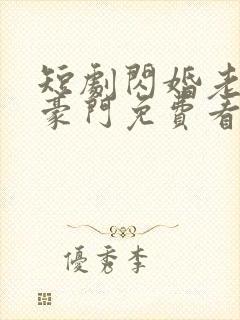 短劇閃婚老
豪門免費看
優秀李